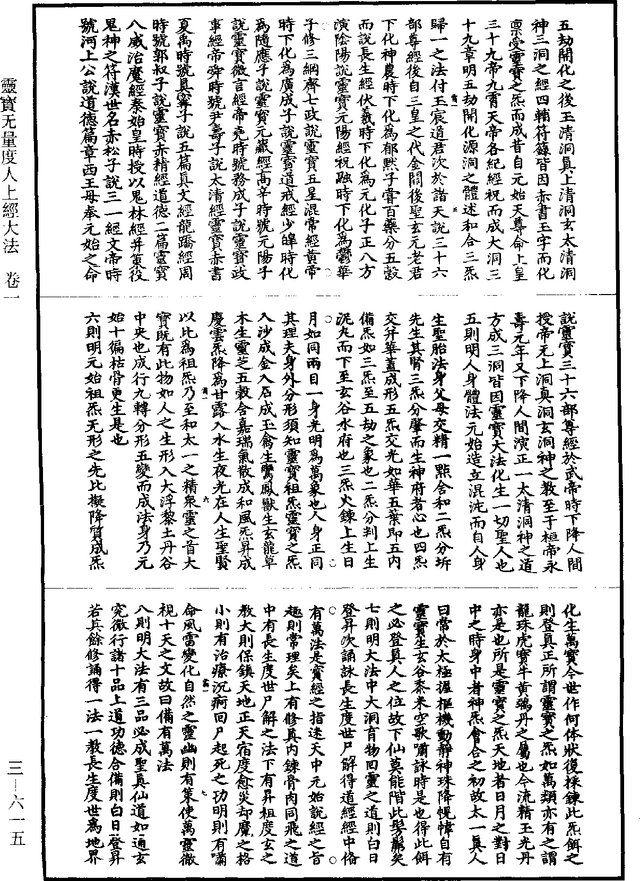 五劫開化之後玉清洞真上清洞玄太清洞
神三洞之經四輔符籙皆因赤書玉字而化
稟受靈寶之炁而成昔自元始天尊命上皇
三十九帝九霄天帝各紀經祝而成大洞三
十九章明五劫開化源洞之體述和合三炁
歸一之法付玉宸道君次於諸天說三十六
部尊經後自三皇之代金闕後聖玄元老君
下化神農時下化為郁默子嘗百藥分五穀
而說長生經伏羲時下化為元化子正八方
演陰陽說靈寶元陽經祝融時下化為廣華
子修三綱齊七政說靈寶五星混常經黃帝
時下化為廣成子說靈寶道戒經少皥時代
為隨應子說靈寶元藏經高辛時號元陽子
說靈寶微言經帝堯時號務成子說靈寶政
事經帝舜時號尹壽子說太清經靈寶赤書
夏禹時號真寗子說五篇真文經龍蹻經周
時號郭叔子說靈寶赤精經道德二篇靈寶
八威治魔經秦始皇時授以鬼林經并策役
鬼神之符漢世名赤松子說三一經文帝時
號河上公說道德篇章西王母奉元始之命
說靈寶三十六部尊經於武帝時下降人間
授帝元上洞真洞玄洞神之教至于桓帝永
壽元年又下降人間演正一太清洞神之道
方成三洞皆因靈寶大法化生一切聖人也
五則明人身體法元始造立混沌而自人身
生聖胎法身父母交精一點含和二炁分坼
先生其腎三炁分肇而生神府者心也四炁
交并華蓋成形五炁交光如華五葉即五內
備炁如三炁至五劫之象也二炁分判上生
泥丸而下至玄谷水府也三炁火鍊上生日
月如同兩目一身光明為萬象也人身正同
其理夫身外分形須知靈寶祖炁靈寶之炁
入沙成金入石成玉禽生鸞鳳獸生玄龍草
木生靈芝五穀含嘉瑞氣散成和風炁昇成
慶雲炁降為甘露入水生夜光在人生聖賢
以此為祖炁乃至和太一之精衆靈之首大
寶既有此物如人之生形入大浮黎土丹谷
中央也成行九轉分形五變而成法身乃元
始十徧枯骨更生是也
六則明元始祖炁无形之先比擬降質成炁
化生萬寶今世作何體狀復採鍊此炁餌之
則登真正所謂靈寶之炁如萬類亦有之謂
龍珠虎寶牛黃鴉丹之屬也今流精玉光丹
亦是也所是靈寶之炁天地者日月之對日
中之時身中者神炁會合之初故太一真人
曰常於太極握樞機動靜神珠降幌幃自有
靈寶生玄谷黍米空歌嘯詠時是也得此餌
之必登真人之位故下仙莫能階此髣髴矣
七則明大法中大洞育物回靈之道則白日
登昇次誦詠長生度世尸解得道經經中脩
有萬法是寶經之指迷天中元始說經之旨
趣則常理矣上有修真內鍊骨肉同飛之道
中有長生度世尸解之法下有昇祖度玄之
教大則保鎮天地正天宿度愈炎却魔之格
小則有治療沉痾回尸起死之功明則有嘯
命風雷變化自然之靈幽則有策使萬靈徵
祝十天之文故曰備有萬法
八則明大法有三品必成聖真仙道如通玄
究微行諸十品上道功德合備則白日登昇
若其餘修誦得一法一教長生度世為地界
靈寶无量度人上經大法　卷一
三―六一五